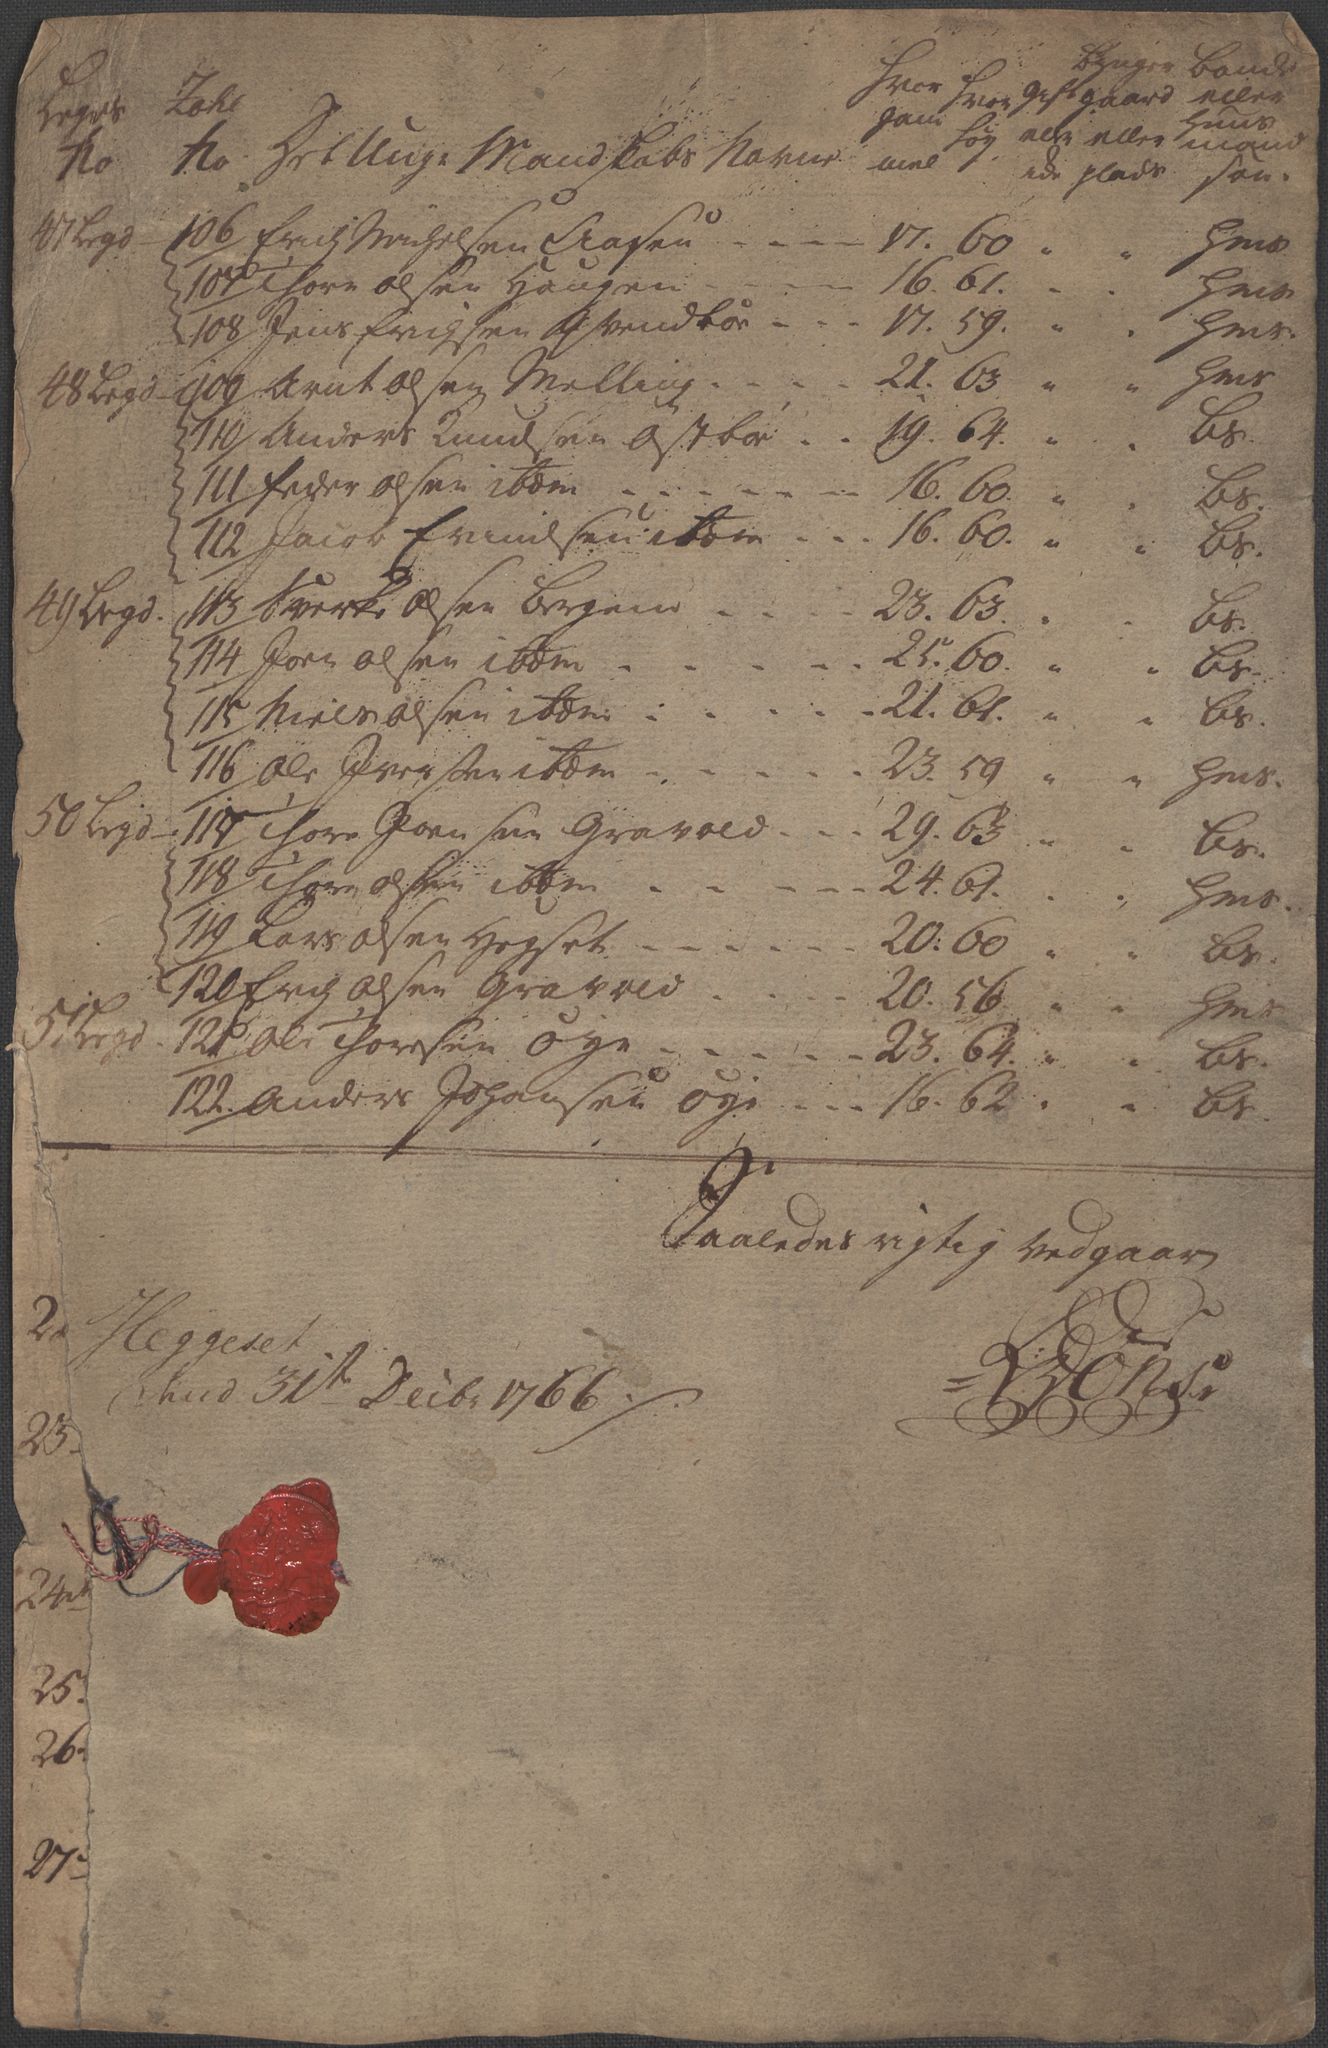 Legds No
Tahl No
Det Unge Mandskabs Navne
Hvor gammel
Hvor høy
Gift eller ide
Byger gaard eller plads
Bonde eller Huusmand søn.
47 Legd 106 Erich Michelsen Aasen 17. 60 " " hms
107 Thore Olsen Haugen 16. 61. " " hms
108 Jens Erichsen Qvendbøe 17. 59. " " hms.
48 Legd 109 Arnt Olsen Melling 21. 63 " " hms
110 Anders Knudsen Østbøe 19. 64. " " bs.
111 Peder Olsen ibdm 16. 60. " " bs.
112 Jacob Evindsen ibdm 16. 60. " " bs.
49 Legd. 113 Sverke Olsen Bergem 23. 63. " " bs.
114 Joen Olsen ibdm 25. 60. " " bs.
115 Niels Olsen ibdm 21. 61. " " bs.
116 Ole Iversen ibdm 23. 59 " " hms.
50 Legd 117 Thore Joensen Gravold 29. 63 " " bs.
118 Thore Olsen ibdm 24. 61. " " hms.
119 Lars Olsen Hegset 20. 60 " " bs.
120 Erich Olsen Gravold 20. 56 " " hms
51 Legd 121 Ole Thoresen Øye 23. 64. " " bs.
122. Anders Johansen Øye 16. 62 " " bs.
Saaledes rigtig vedgaar
Heggeset
dend 31te Decbr 1766
23
24
25.
26.
27